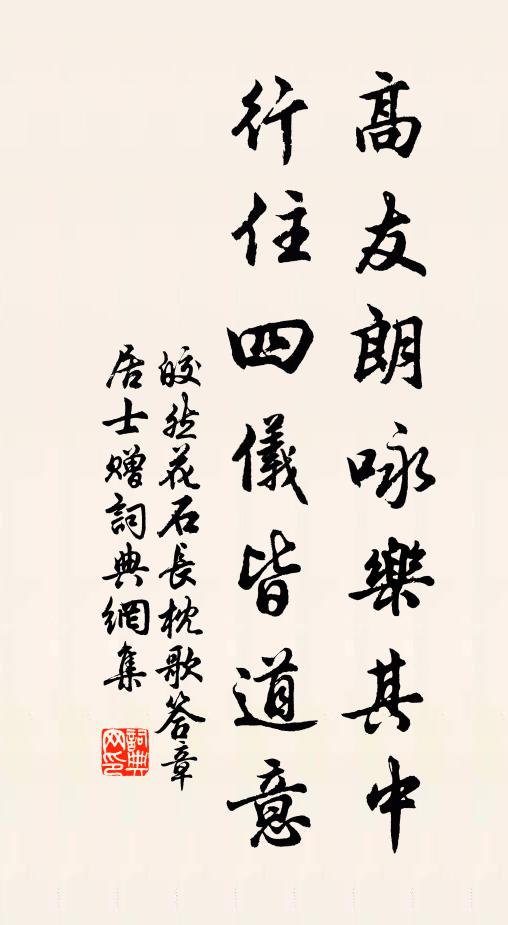 高友朗咏樂其中
行住四儀皆道意
皎然花石長枕歌答章
居士贈詞典網集
詞典網印